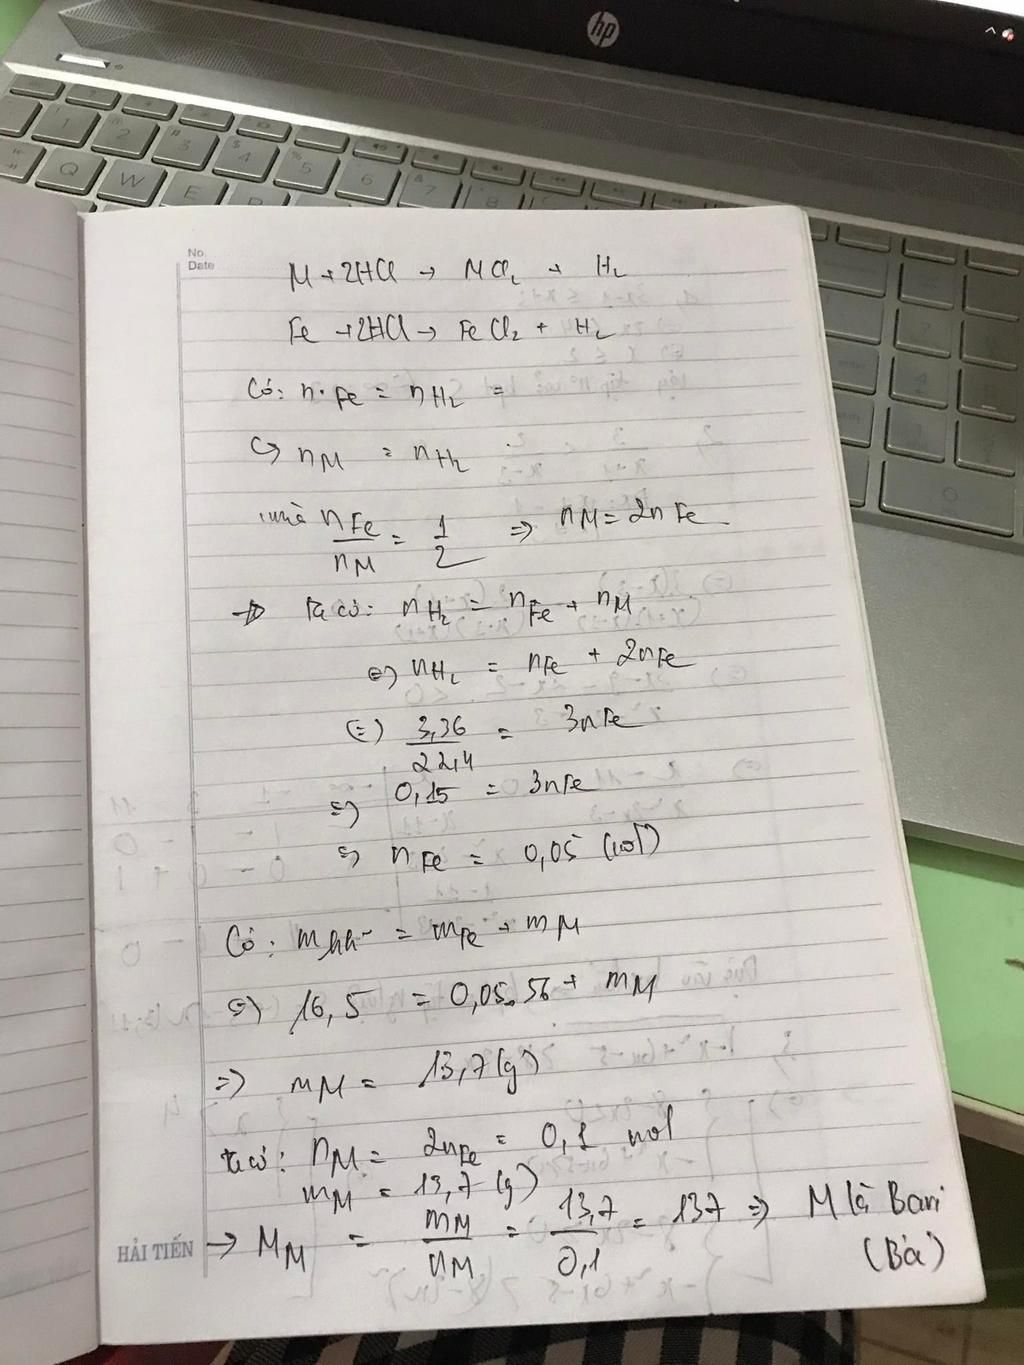 hp
1 2 3 4 5 6 7 8
Q W E R
No.
Date
M + 2HCl → MCl₂ + H₂
Fe + 2HCl → FeCl₂ + H₂
Có: n.Fe = nH₂ =
↪ nM = nH₂
mà nFe/nM = 1/2 ⇒ nM = 2nFe
→ Ta có: nH₂ = nFe + nM
⇔ nH₂ = nFe + 2nFe
⇔ 3,36/22,4 = 3nFe
⇒ 0,15 = 3nFe
⇒ nFe = 0,05 (mol)
Có: mhh = mFe + mM
⇔ 16,5 = 0,05.56 + mM
⇒ mM = 13,7 (g)
Ta có: nM = 2nFe = 0,1 mol
mM = 13,7 (g)
→ MM = mM/nM = 13,7/0,1 = 137 ⇒ M là Bari
(Ba)
HẢI TIẾN